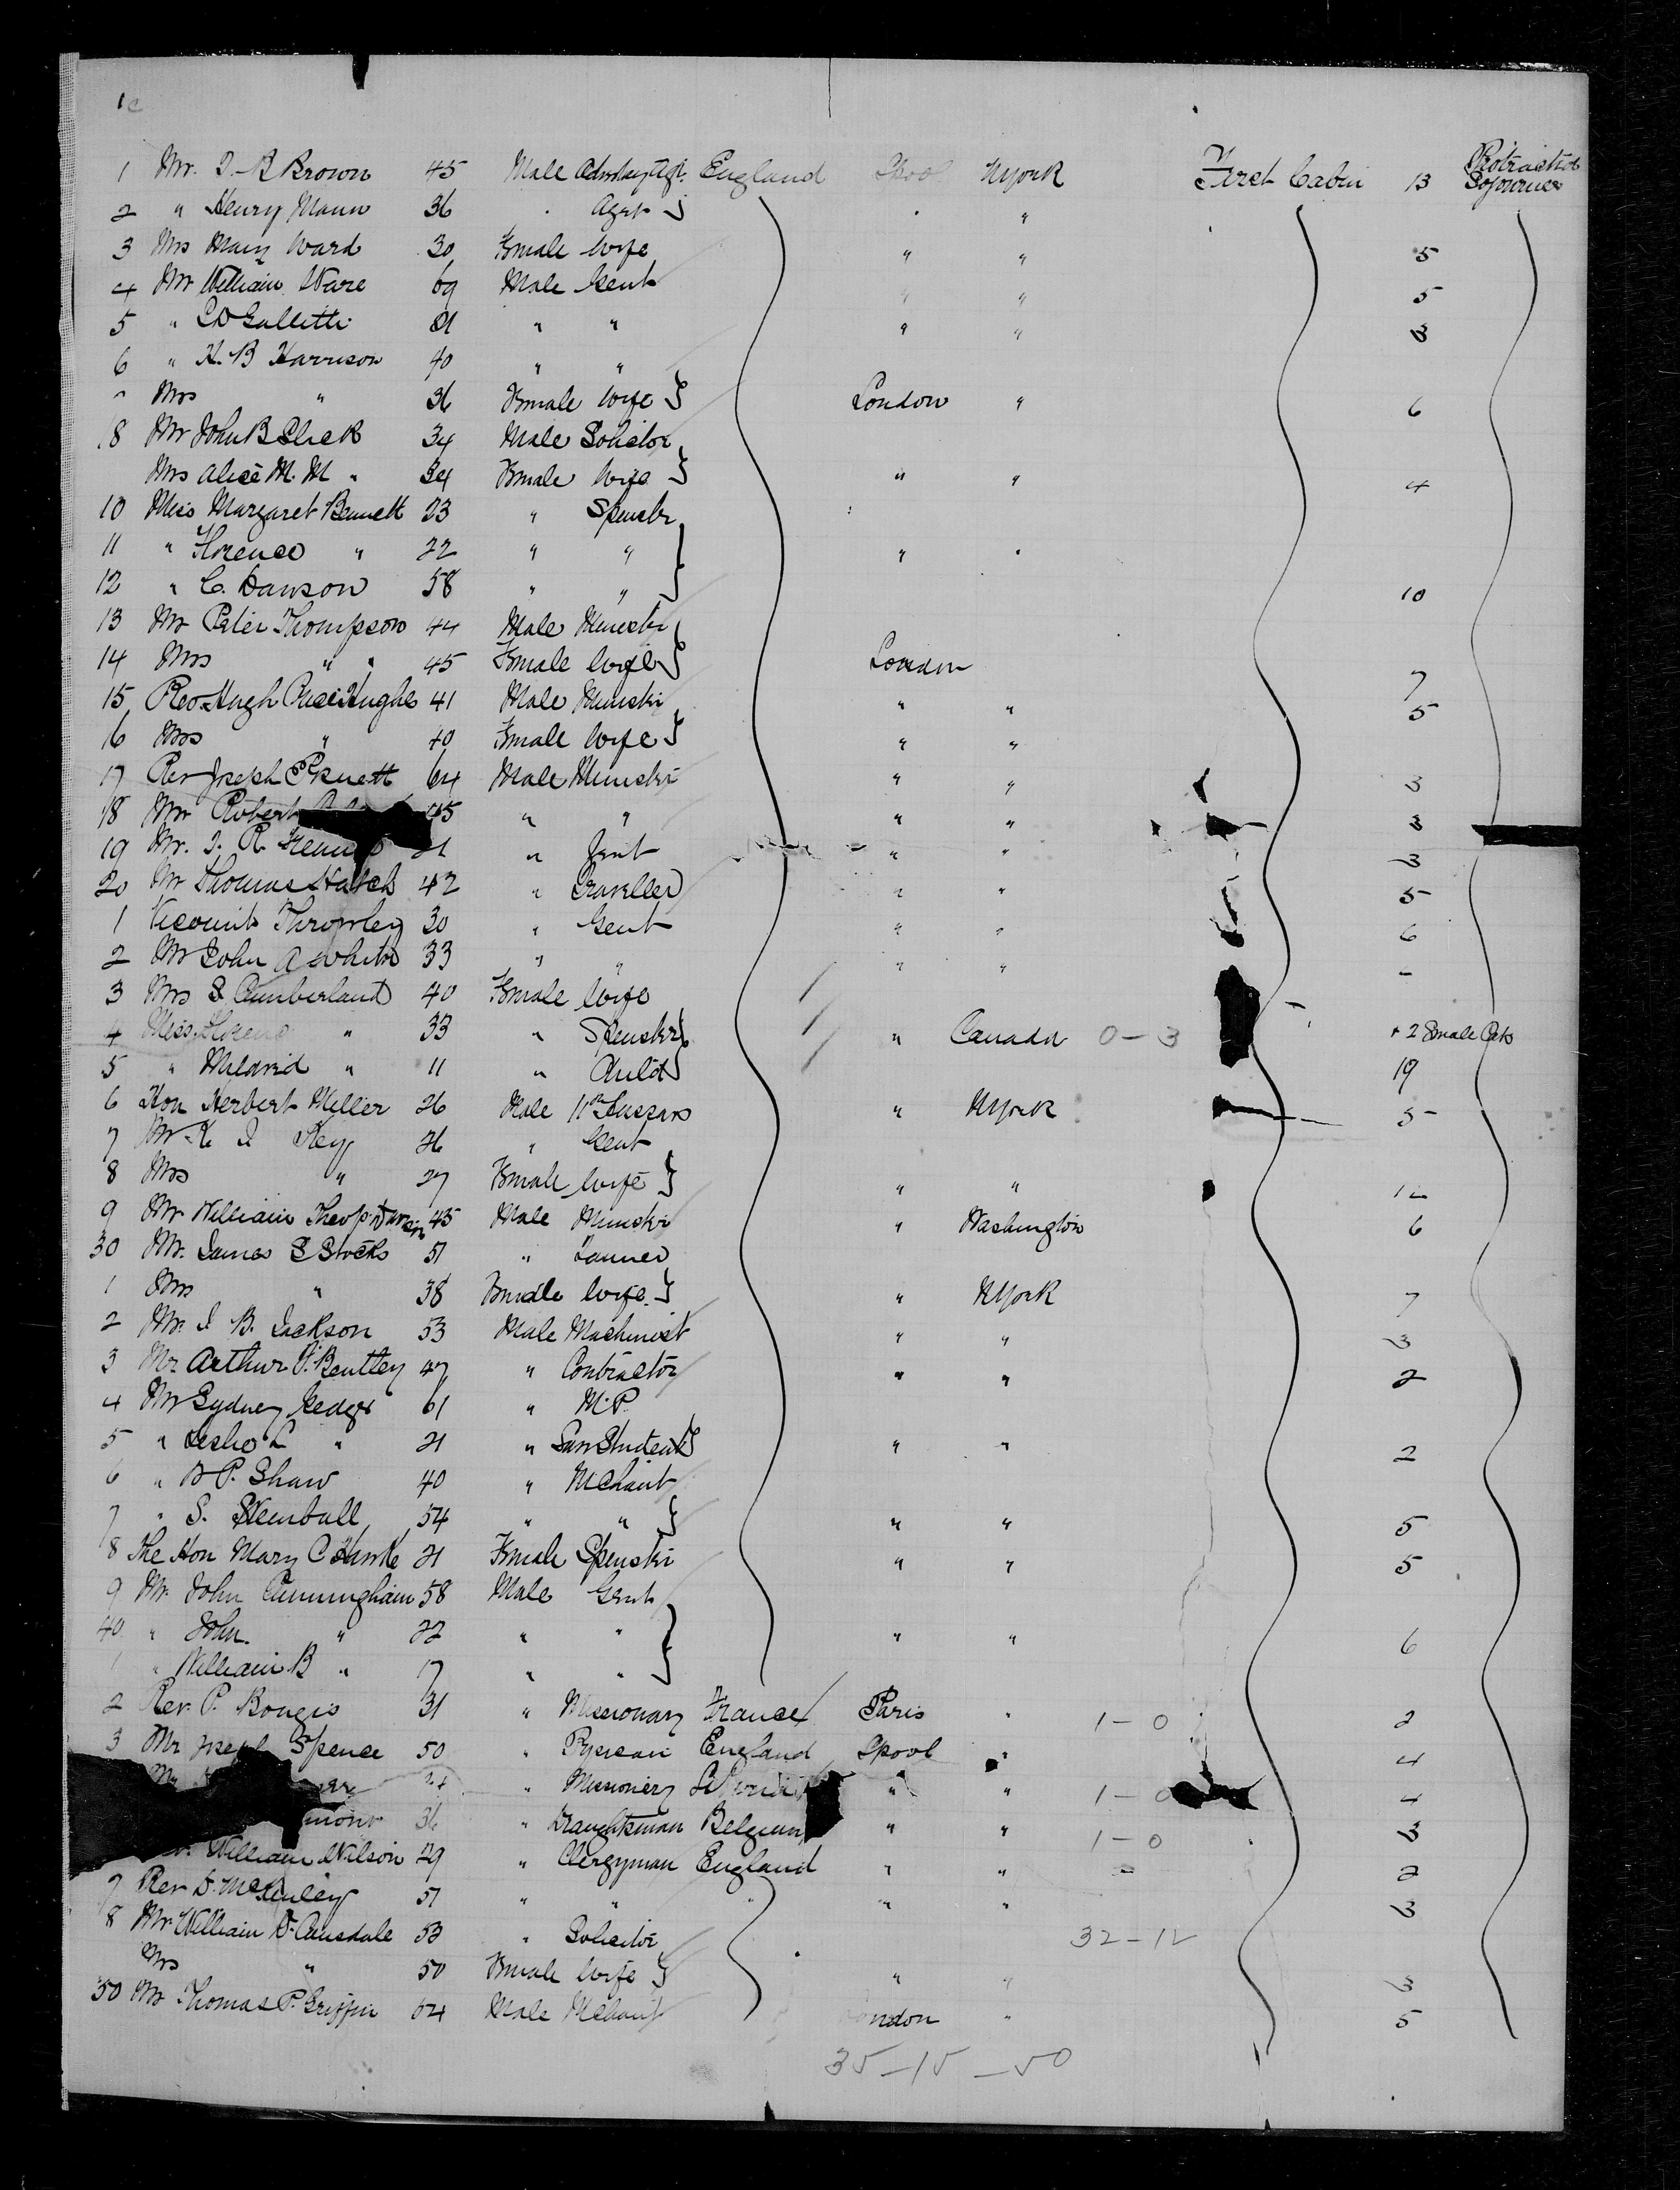 1 Mr. J. B Brown 45 Male England Lpool NYork First Cabin 13 Protracted Sojourner
2 " Henry Mann 36 " Agent " "
3 Mrs Mary Ward 30 Female Wife " " 5
4 Mr William Ware 69 Male Gent " " 5
5 " " " " " 3
6 " H. B Harrison 40 " "
Mrs " 36 Female Wife London " 6
8 Mr John B Slack 34 Male Solicitor
Mrs Alice M. M " 34 Female Wife " " 4
10 Miss Margaret Bennett 23 " Spinster
11 " Florence " 22 " " " "
12 " C. Dawson 58 " " 10
13 Mr Peter Thompson 44 Male Minister
14 Mrs " " 45 Female Wife London 7
15 Rev. Hugh Price Hughes 41 Male Minister " " 5
16 Mrs " 40 Female Wife " "
17 Rev Joseph 64 Male Minister " " 3
18 Mr Robert 45 " " " " 3
19 Mr. J. R. 21 " Gent " " 3
20 Mr Thomas Hatch 42 " Traveller " " 5
1 Viscount Throwley 30 " Gent " " 6
2 Mr John A White 33 " " " " -
3 Mrs S Cumberland 40 Female Wife
4 Miss Florence " 33 " Spinster " Canada 0-3 + 2 Small Pcls
5 " Mildred " 11 " Child 19
6 Hon Herbert Miller 26 Male 11th Hussars " NYork 5
7 Mr K J Key 26 " Gent
8 Mrs " 27 Female Wife " " 12
9 Mr William Theop 45 Male Minister " Washington 6
30 Mr. James S Stocks 51 " Tanner
1 Mrs " 38 Female Wife " NYork 7
2 Mr. J B. Jackson 53 Male Machinist " " 3
3 Mr Arthur F. Bentley 47 " Contractor " " 2
4 Mr Sydney Gedge 61 " M.P.
5 " Leslie L " 21 " Law Student " " 2
6 " B P. Shaw 40 " Mchant
7 " S. Kemball 54 " " " " 5
8 The Hon Mary C Hawke 21 Female Spinster " " 5
9 Mr John Cunningham 58 Male Gent
40 " John " 22 " " " " 6
1 " William B " 17 " "
2 Rev. P. Bougis 31 " Missionary France Paris " 1-0 2
3 Mr Joseph Spence 50 " England Lpool " 4
" Missionary " " 1-0 4
36 " Draughtsman Belgium " " 1-0 3
William Wilson 29 " Clergyman England " " - 2
7 Rev D. McKinley 51 " " " " " 3
8 Mr William D. Cansdale 53 " Solicitor 32-12
Mrs " 50 Female Wife " " 3
50 Mr Thomas P. Griffin 64 Male Mchant London " 5
35-15-50